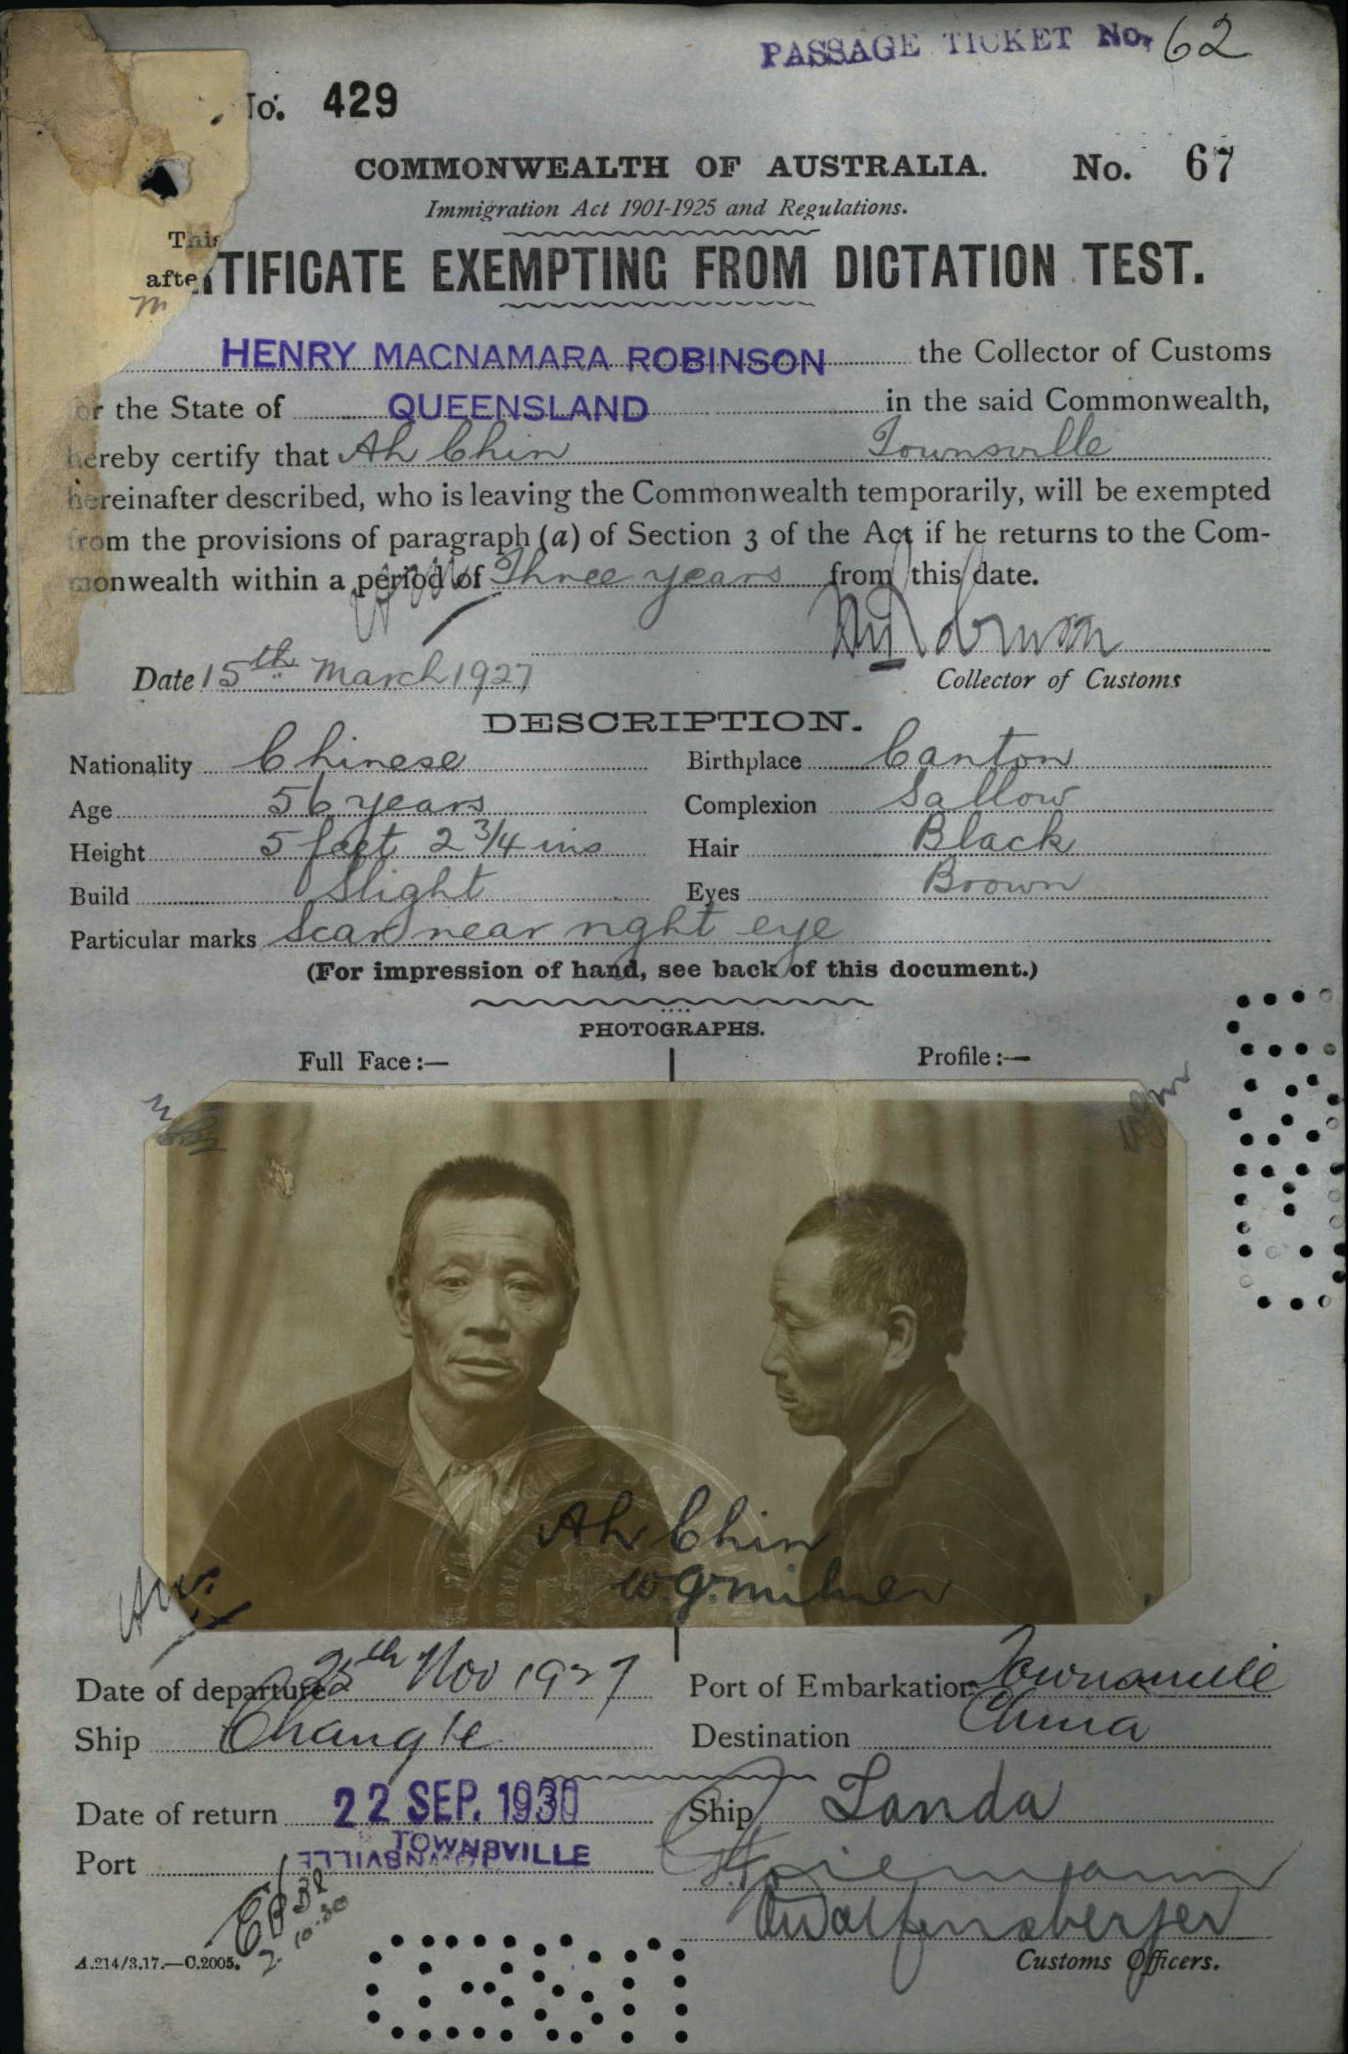 PASSAGE TICKET No. 62
No. 429
COMMONWEALTH OF AUSTRALIA. No. 67
Immigration Act 1901-1925 and Regulations.
This
TIFICATE EXEMPTING FROM DICTATION TEST.
afte
HENRY MACNAMARA ROBINSON the Collector of Customs
or the State of QUEENSLAND in the said Commonwealth,
hereby certify that Ah Chin Townsville
hereinafter described, who is leaving the Commonwealth temporarily, will be exempted
from the provisions of paragraph (a) of Section 3 of the Act if he returns to the Com-
monwealth within a period of Three years from this date.
Date 15th March 1927
Collector of Customs
DESCRIPTION.
Nationality Chinese Birthplace Canton
Age 56 years Complexion Sallow
Height 5 feet 2 3/4 ins Hair Black
Build Slight Eyes Brown
Particular marks Scar near right eye
(For impression of hand, see back of this document.)
PHOTOGRAPHS.
Full Face:— Profile:—
Ah Chin
W. G. Milner
Date of departure 25th Nov 1927 Port of Embarkation Townsville
Ship Changte Destination China
Date of return 22 SEP. 1930 Ship Tanda
Port TOWNSVILLE
A.214/3.17.—C.2005. Customs Officers.